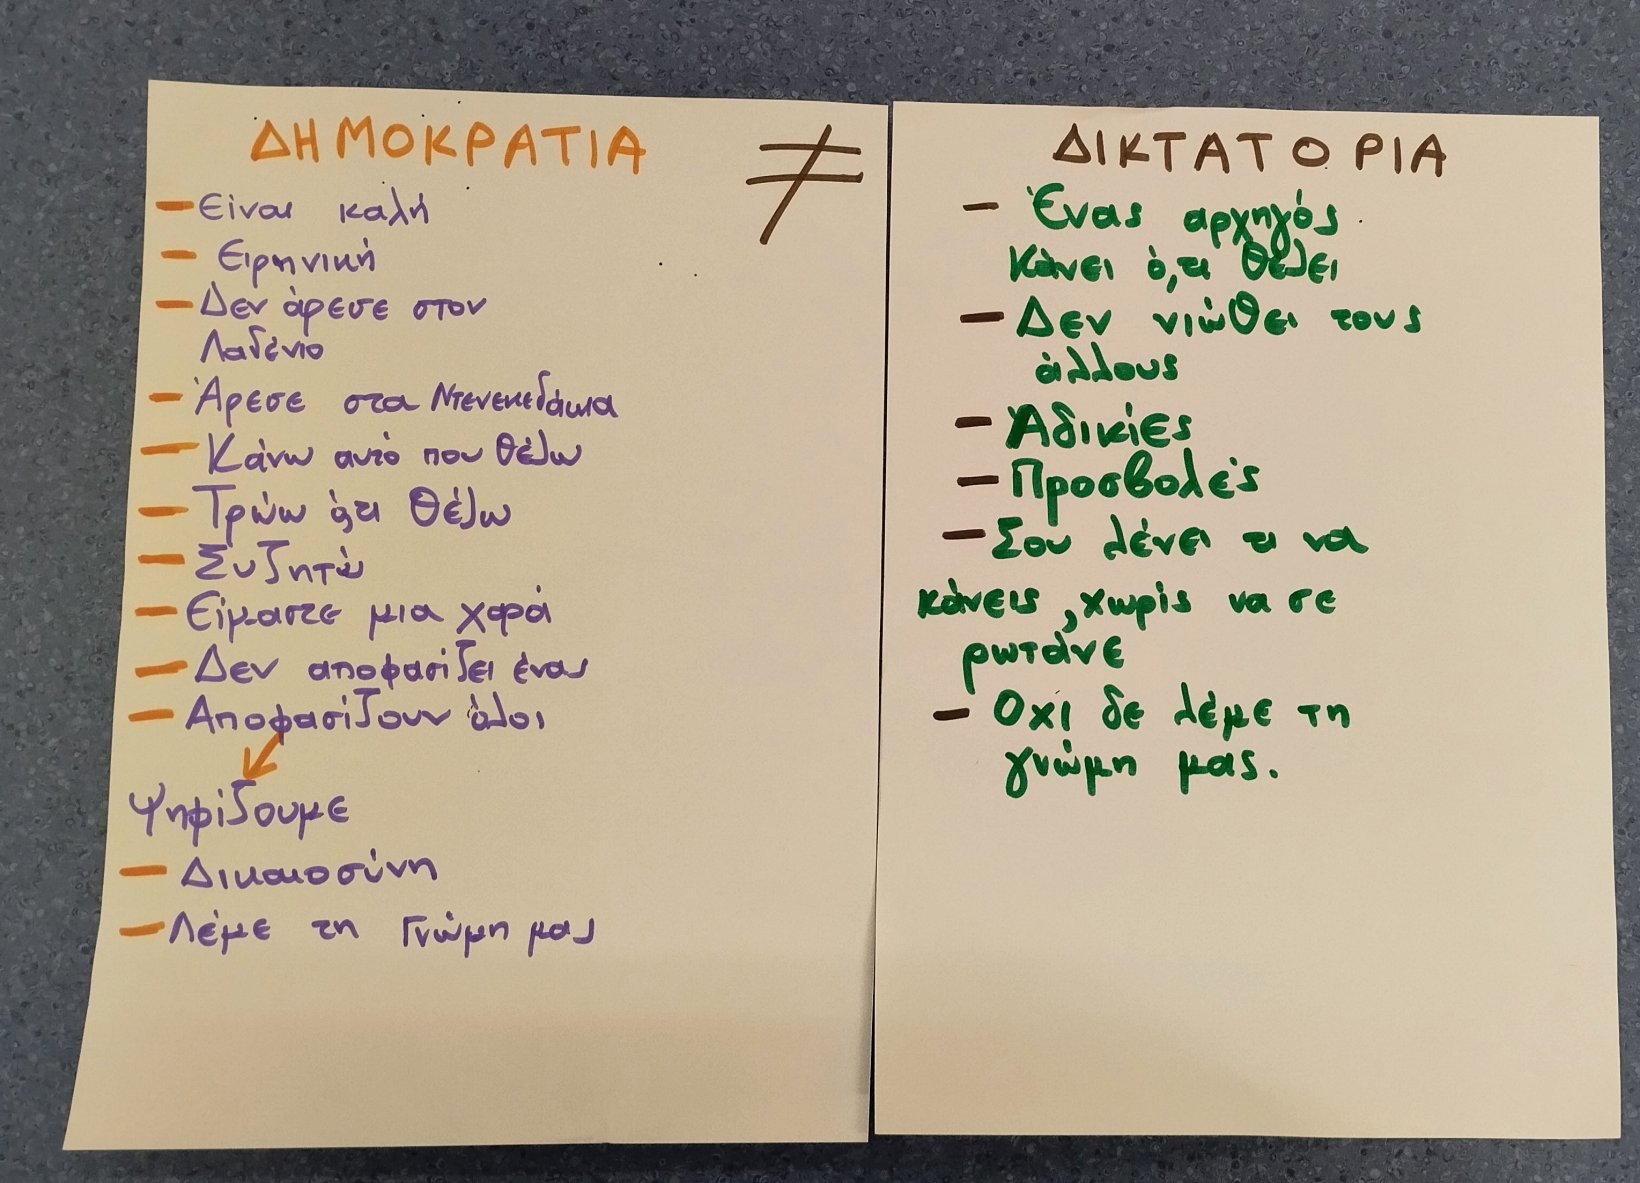 ΔΗΜΟΚΡΑΤΙΑ
≠
- Είναι καλή
- Ειρηνική
- Δεν άρεσε στον
Λαδένιο
- Άρεσε στα Ντενεκεδάκια
- Κάνω αυτό που θέλω
- Τρώω ό,τι θέλω
- Συζητώ
- Είμαστε μια χαρά
- Δεν αποφασίζει ένας
- Αποφασίζουν όλοι
Ψηφίζουμε
- Δικαιοσύνη
- Λέμε τη Γνώμη μας
ΔΙΚΤΑΤΟΡΙΑ
- Ένας αρχηγός
κάνει ό,τι θέλει
- Δεν νιώθει τους
άλλους
- Αδικίες
- Προσβολές
- Σου λένει τι να
κάνεις, χωρίς να σε
ρωτάνε
- Όχι δε λέμε τη
γνώμη μας.